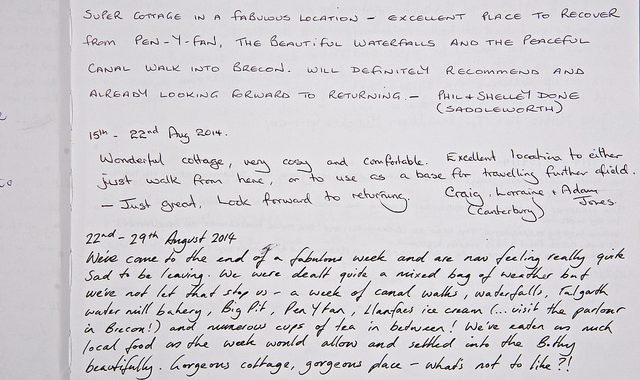 SUPER COTTAGE IN A FABULOUS LOCATION - EXCELLENT PLACE TO RECOVER
FROM PEN-Y-FAN, THE BEAUTIFUL WATERFALLS AND THE PEACEFUL
CANAL WALK INTO BRECON. WILL DEFINITELY RECOMMEND AND
ALREADY LOOKING FORWARD TO RETURNING. - PHIL + SHELLEY DONE
(SADDLEWORTH)
15th - 22nd Aug 2014.
Wonderful cottage, very cosy and comfortable. Excellent location to either
just walk from here, or to use as a base for travelling further afield.
- Just great. Look forward to returning. Craig, Lorraine + Adam
(Canterbury) Jones.
22nd - 29th August 2014
We've come to the end of a fabulous week and are now feeling really quite
sad to be leaving. We were dealt quite a mixed bag of weather but
we've not let that stop us - a week of canal walks, waterfalls, Talgarth
water mill bakery, Big Pit, Pen Y Fan, Llanfaes ice cream (... visit the parlour
in Brecon!) and numerous cups of tea in between! We've eaten as much
local food as the week would allow and settled into the Bothy
beautifully. Gorgeous cottage, gorgeous place - what's not to like?!